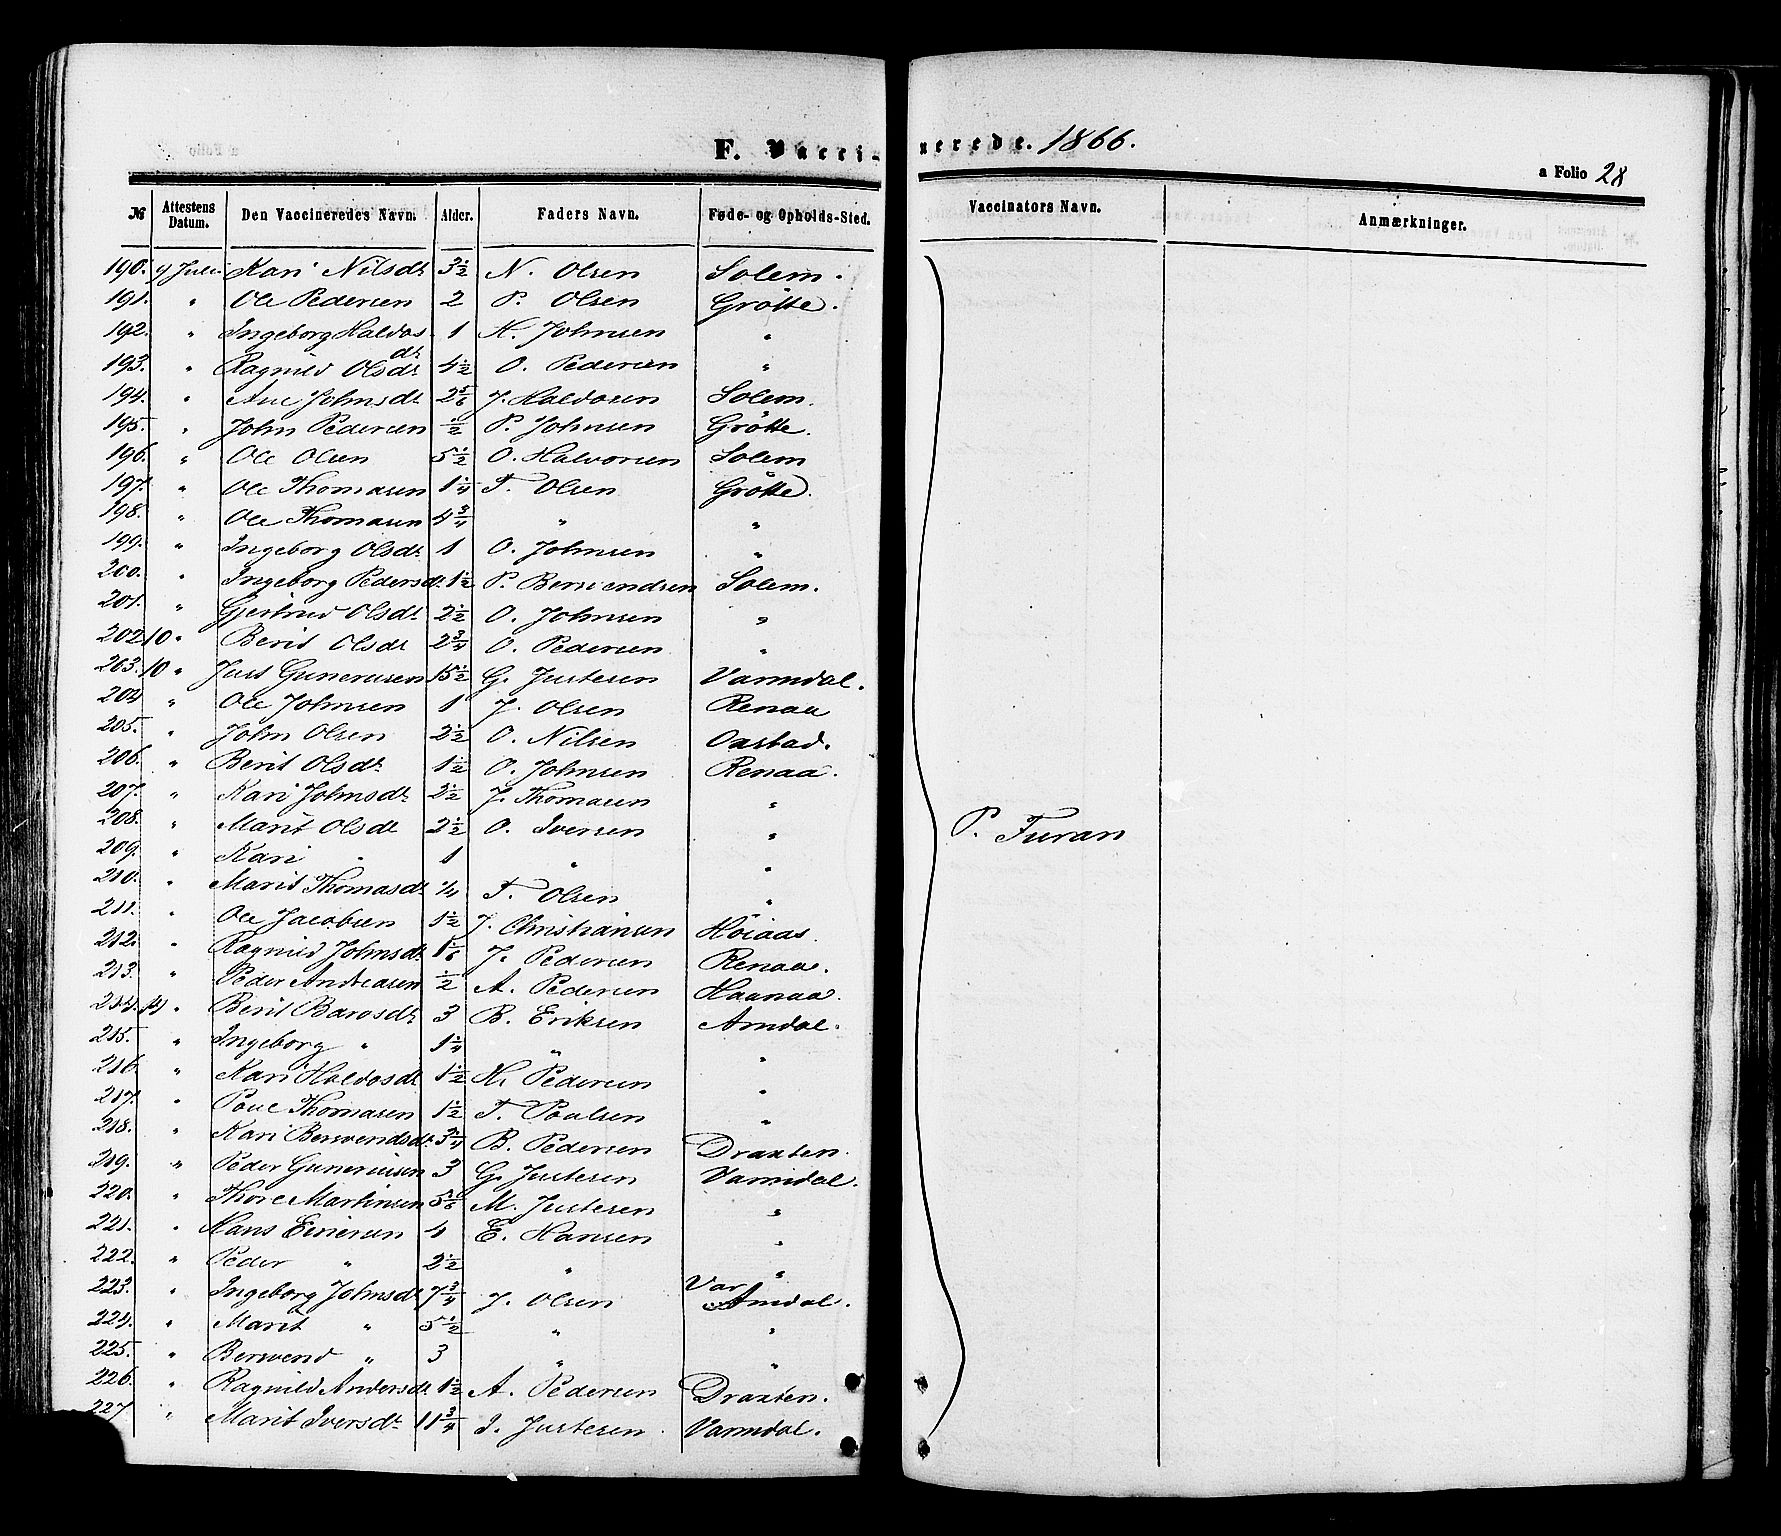 F. Vaccinerede. 1866.
a Folio 28
№ Attestens Datum. Den Vaccineredes Navn. Alder. Faders Navn. Føde- og Opholds-Sted. Vaccinators Navn. Anmærkninger.
190. 9 Juli Kari Nilsdt 3 1/2 N. Olsen Solem.
191. " Ole Pedersen 2 P. Olsen Grötte.
192. " Ingeborg Haldos dt 1 H. Johnsen "
193. " Ragnild Olsdt 4 1/2 O. Pedersen "
194. " Ane Johnsdt 2 5/6 J. Haldosen Solem.
195. " John Pedersen 1/2 P. Johnsen Grötte.
196. " Ole Olsen 5 1/2 O. Halvorsen Solem
197. " Ole Thomasen 1 1/4 T. Olsen Grötte.
198. " Ole Thomasen 4 3/4 " "
199. " Ingeborg Olsdt 1 O. Johnsen "
200. " Ingeborg Pedersdt. 1 1/2 P. Bersvendsen Solem.
201. " Gjertrud Olsdt. 2 1/2 O. Johnsen "
202. 10 " Berit Olsdt 2 3/4 O. Pedersen "
203. 10 " Just Gunerusen 15 1/2 G. Justesen Varmdal.
204 " Ole Johnsen 1 J. Olsen Renaa
205. " John Olsen 2 1/2 O. Nilsen Oxstad.
206. " Berit Olsdt. 1 1/2 O. Johnsen Renaa.
207. " Kari Johnsdt. 2 1/2 J. Thomasen "
208. " Marit Olsdt 2 1/2 O. Iversen " P. Furan
209. " Kari " 1 " "
210. " Marit Thomasdt 1/4 T. Olsen "
211. " Ole Jacobsen 1 1/2 J. Christiansen Höiaas.
212. " Ragnild Johnsdt. 1 1/6 J. Pedersen Renaa.
213. " Peder Andreasen 1/2 A. Pedersen Haanaa.
214. " Berit Barosdt. 3 B. Eriksen Amdal.
215. " Ingeborg " 1 1/4 " "
216. " Kari Haldosdt. 1 1/2 H. Pedersen "
217. " Poul Thomasen 1 1/2 T. Poulsen "
218. " Kari Bersvendsdt. 3 3/4 B. Pedersen Draxten.
219. " Peder Guneriusen 3 G. Justesen Varmdal.
220. " Thore Martinsen 5 5/6 M. Justesen "
221. " Hans Einersen 4 E. Hansen "
222. " Peder " 2 1/2 " "
223. " Ingeborg Johnsdt 7 3/4 J. Olsen Amdal.
224. " Marit " 5 1/2 " "
225. " Bersvend " 3 " "
226. " Ragnild Andersdt. 1 1/2 A. Pedersen Draxten.
227 " Marit Iversdt. 11 3/4 I. Justesen. Varmdal.